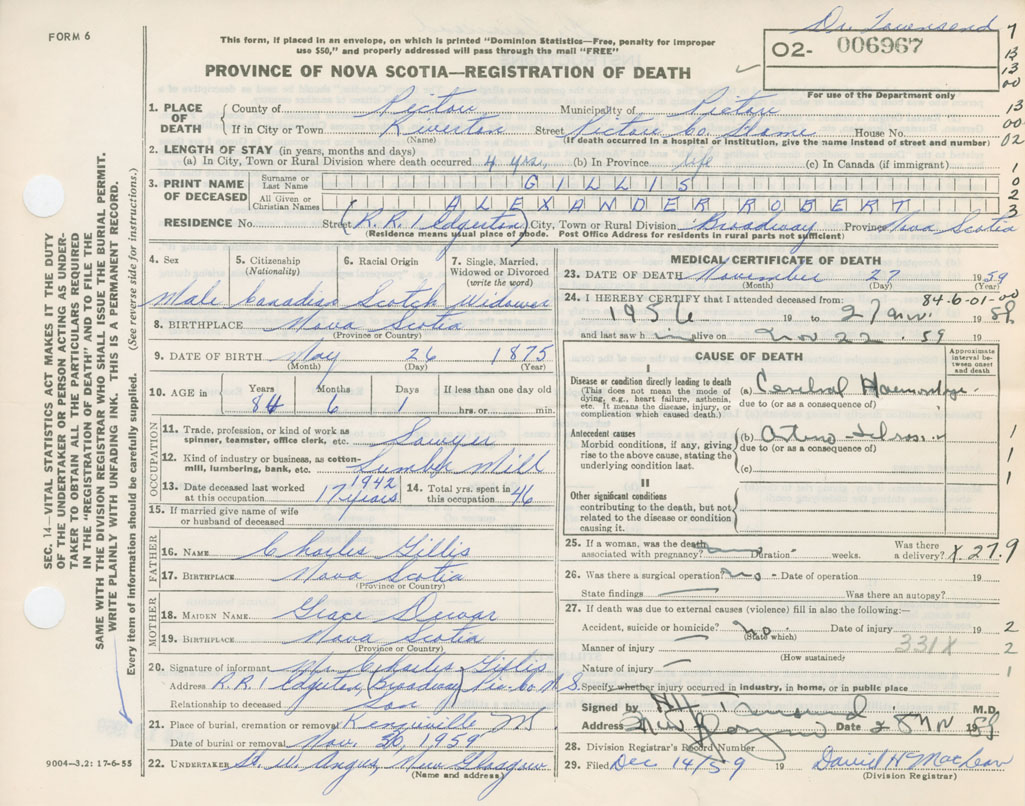 Dr. Townsend
FORM 6
This form, if placed in an envelope, on which is printed "Dominion Statistics—Free, penalty for improper
use $50," and properly addressed will pass through the mail "FREE"
02- 006967
7
13
13
00
PROVINCE OF NOVA SCOTIA—REGISTRATION OF DEATH
For use of the Department only
1. PLACE OF DEATH { County of Pictou Municipality of Pictou 13
If in City or Town Riverton Street Pictou Co Home House No. 00
(Name) (If death occurred in a hospital or institution, give the name instead of street and number) 02
2. LENGTH OF STAY (in years, months and days)
(a) In City, Town or Rural Division where death occurred 4 yrs. (b) In Province life (c) In Canada (if immigrant) 1
3. PRINT NAME OF DECEASED { Surname or Last Name GILLIS 0
All Given or Christian Names ALEXANDER ROBERT 2
3
RESIDENCE No. Street (R.R.1 Edgerton) City, Town or Rural Division Broadway Province Nova Scotia
(Residence means usual place of abode. Post Office Address for residents in rural parts not sufficient)
SEC. 14—VITAL STATISTICS ACT MAKES IT THE DUTY
OF THE UNDERTAKER OR PERSON ACTING AS UNDER-
TAKER TO OBTAIN ALL THE PARTICULARS REQUIRED
IN THE "REGISTRATION OF DEATH" AND TO FILE THE
SAME WITH THE DIVISION REGISTRAR WHO SHALL ISSUE THE BURIAL PERMIT.
WRITE PLAINLY WITH UNFADING INK. THIS IS A PERMANENT RECORD.
Every item of information should be carefully supplied. (See reverse side for instructions.)
4. Sex 5. Citizenship (Nationality) 6. Racial Origin 7. Single, Married, Widowed or Divorced (write the word)
Male Canadian Scotch Widower
8. BIRTHPLACE Nova Scotia
(Province or Country)
9. DATE OF BIRTH May 26 1875
(Month) (Day) (Year)
10. AGE in { Years Months Days If less than one day old
84 6 1 hrs. or min.
OCCUPATION
11. Trade, profession, or kind of work as
spinner, teamster, office clerk, etc. Sawyer
12. Kind of industry or business, as cotton-
mill, lumbering, bank, etc. Lumber Mill
13. Date deceased last worked at this occupation 1942 17 years
14. Total yrs. spent in this occupation 46
15. If married give name of wife
or husband of deceased
FATHER
16. NAME Charles Gillis
17. BIRTHPLACE Nova Scotia
(Province or Country)
MOTHER
18. MAIDEN NAME Grace Dewar
19. BIRTHPLACE Nova Scotia
(Province or Country)
20. Signature of informant Mr. Charles Gillis
Address R.R.1 Edgerton (Broadway) Pic. Co. N.S.
Relationship to deceased Son
21. Place of burial, cremation or removal Kenzieville NS
Date of burial or removal Nov. 30, 1959
22. UNDERTAKER Angus, New Glasgow
(Name and address)
9004—3.2: 17-6-55
MEDICAL CERTIFICATE OF DEATH
23. DATE OF DEATH November 27 1959
(Month) (Day) (Year)
24. I HEREBY CERTIFY that I attended deceased from: 84-6-01-00
1956 19 to 27 Nov. 1959
and last saw him alive on Nov 22 . 59
CAUSE OF DEATH
Approximate interval between onset and death
I
Disease or condition directly leading to death
(This does not mean the mode of
dying, e.g., heart failure, asthenia,
etc. It means the disease, injury, or
complication which caused death.)
(a) Cerebral Haemorrhage
due to (or as a consequence of)
Antecedent causes
Morbid conditions, if any, giving
rise to the above cause, stating the
underlying condition last.
(b) 1
due to (or as a consequence of) 1
(c) 1
II
Other significant conditions
contributing to the death, but not
related to the disease or condition
causing it.
25. If a woman, was the death
associated with pregnancy? Duration weeks. Was there a delivery? X 27.9
26. Was there a surgical operation? no Date of operation 19
State findings Was there an autopsy?
27. If death was due to external causes (violence) fill in also the following:—
Accident, suicide or homicide? no (State which) Date of injury 19 2
Manner of injury 331X 2
(How sustained)
Nature of injury 1
Specify whether injury occurred in industry, in home, or in public place
Signed by Townsend M.D.
Address New Glasgow Date 28 Nov 1959
28. Division Registrar's Record Number
29. Filed Dec 14/59 19 David H MacLean
(Division Registrar)